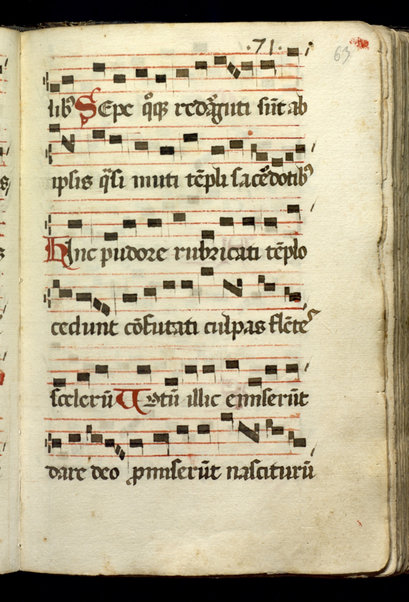 ·71·
63
lib᷒ Sepe q̃q̃ redarguti sūt ab
ipsis q̃si muti tēpli sacēdotib᷒
Hinc pudore rubricati tēplo
cedunt cōfutati culpas flēte᷒
scelerū Uotū illic emiserūt
dare deo ꝓmiserūt nasciturū